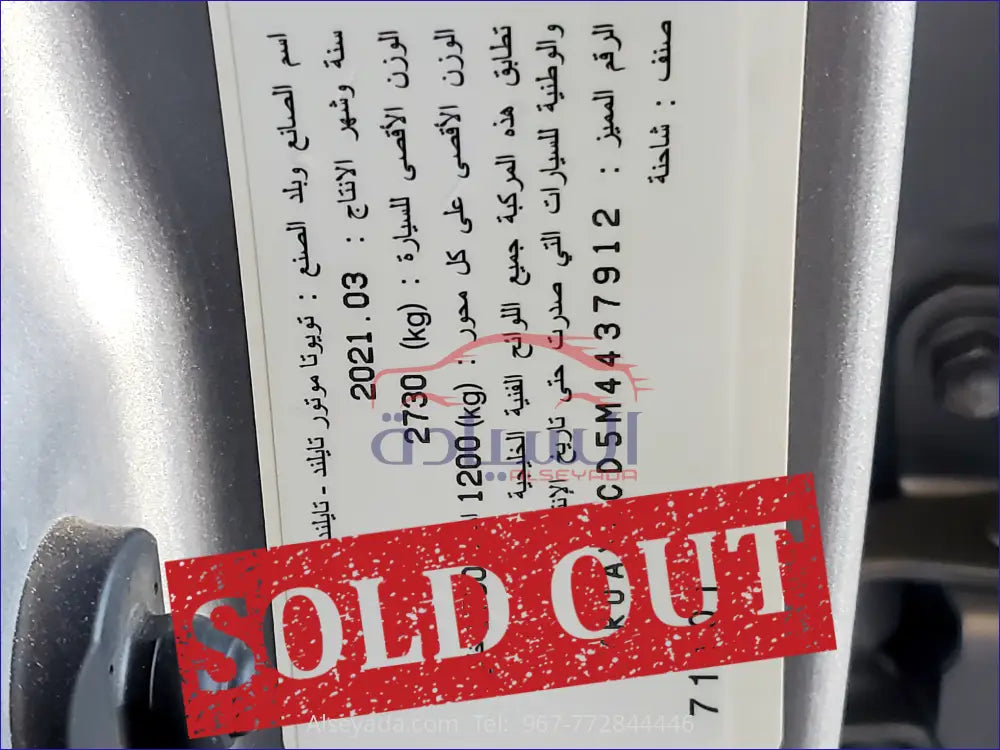 اسم الصانع وبلد الصنع : تويوتا موتور تايلند - تايلند
سنة وشهر الانتاج : 2021.03
الوزن الأقصى للسيارة : (kg) 2730
الوزن الأقصى على كل محور : (kg) 1200
تطابق هذه المركبة جميع اللوائح الفنية الخليجية
والوطنية للسيارات التي صدرت حتى تاريخ
الرقم المميز : CD5M4437912
صنف : شاحنة
السيادة
ALSEYADA
SOLD OUT
Alseyada.com Tel: 967-772844446